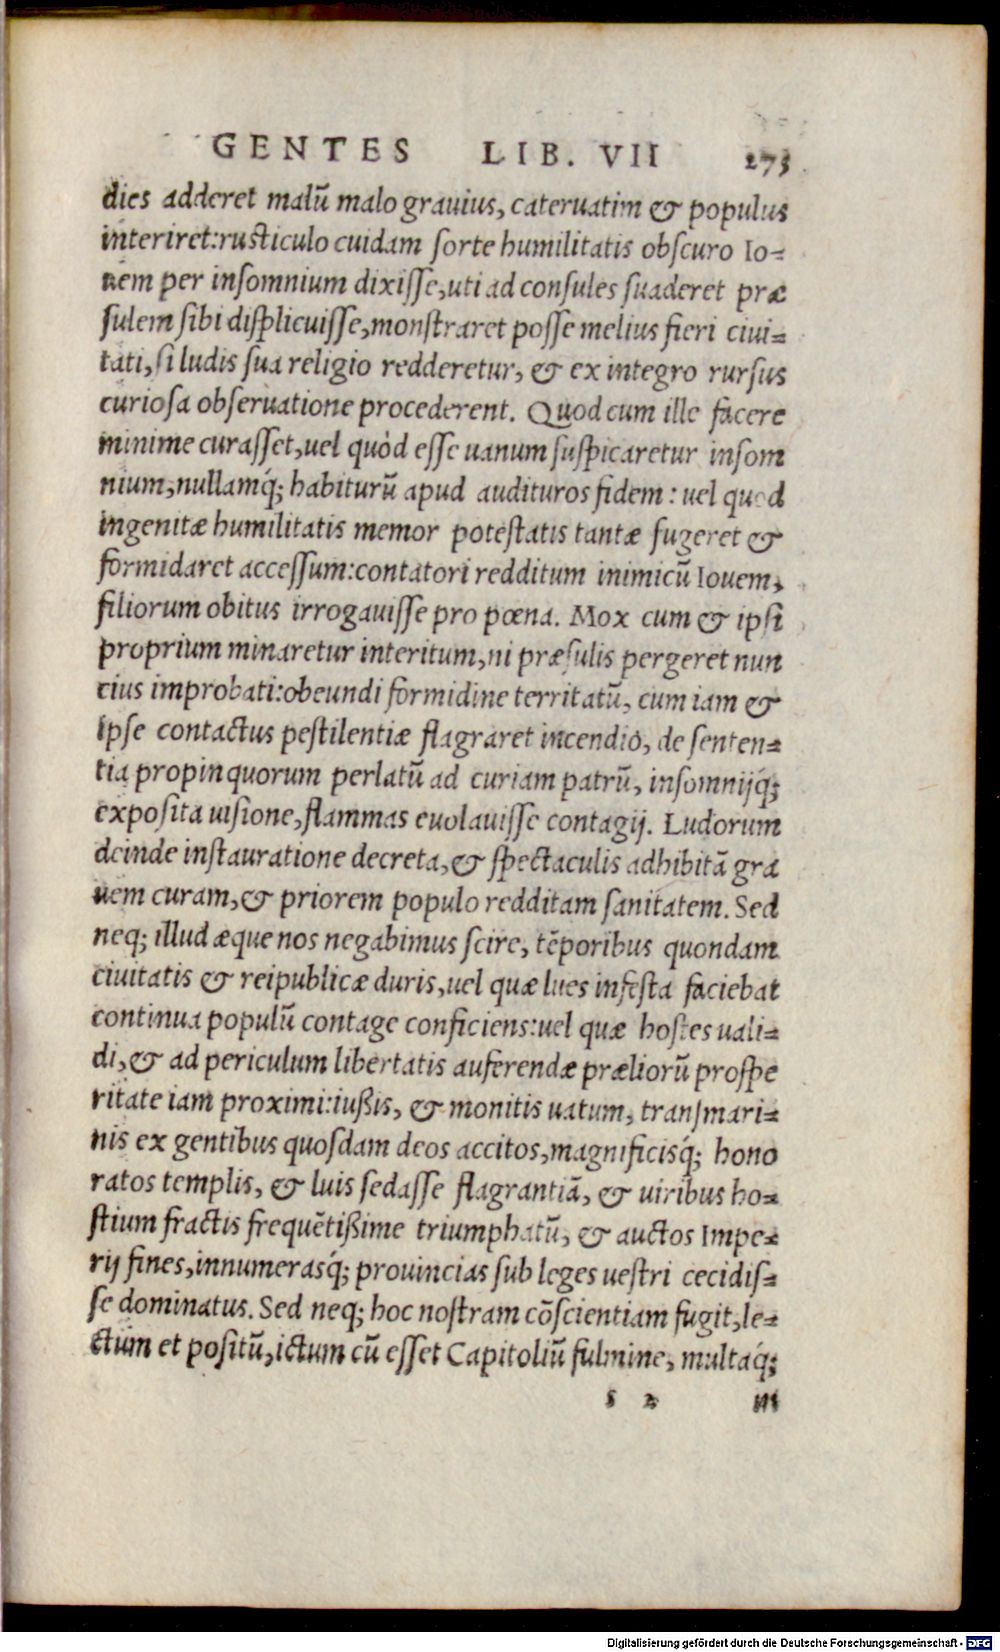 GENTES LIB. VII 275
dies adderet malū malo grauius, cateruatim & populus
interiret: rusticulo cuidam sorte humilitatis obscuro Io-
uem per insomnium dixisse, uti ad consules suaderet præ
sulem sibi displicuisse, monstraret posse melius fieri ciui-
tati, si ludis sua religio redderetur, & ex integro rursus
curiosa obseruatione procederent. Quod cum ille facere
minime curasset, uel quòd esse uanum suspicaretur insom
nium, nullamq́; habiturū apud audituros fidem: uel quod
ingenitæ humilitatis memor potestatis tantæ fugeret &
formidaret accessum: contatori redditum inimicū Iouem,
filiorum obitus irrogauisse pro pœna. Mox cum & ipsi
proprium minaretur interitum, ni præsulis pergeret nun
cius improbati: obeundi formidine territatū, cum iam &
ipse contactus pestilentiæ flagraret incendio, de senten-
tia propinquorum perlatū ad curiam patrū, insomnijq́;
exposita uisione, flammas euolauisse contagij. Ludorum
deinde instauratione decreta, & spectaculis adhibitā gra
uem curam, & priorem populo redditam sanitatem. Sed
neq; illud æque nos negabimus scire, tēporibus quondam
ciuitatis & reipublicæ duris, uel quæ lues infesta faciebat
continua populū contage conficiens: uel quæ hostes uali-
di, & ad periculum libertatis auferendæ præliorū prospe
ritate iam proximi: iußis, & monitis uatum, transmari-
nis ex gentibus quosdam deos accitos, magnificisq́; hono
ratos templis, & luis sedasse flagrantiā, & uiribus ho-
stium fractis frequētißime triumphatū, & auctos Impe-
rij fines, innumerasq́; prouincias sub leges uestri cecidis-
se dominatus. Sed neq; hoc nostram cōscientiam fugit, le-
ctum et positū, ictum cū esset Capitoliū fulmine, multaq́;
s 2 in
Digitalisierung gefördert durch die Deutsche Forschungsgemeinschaft - DFG